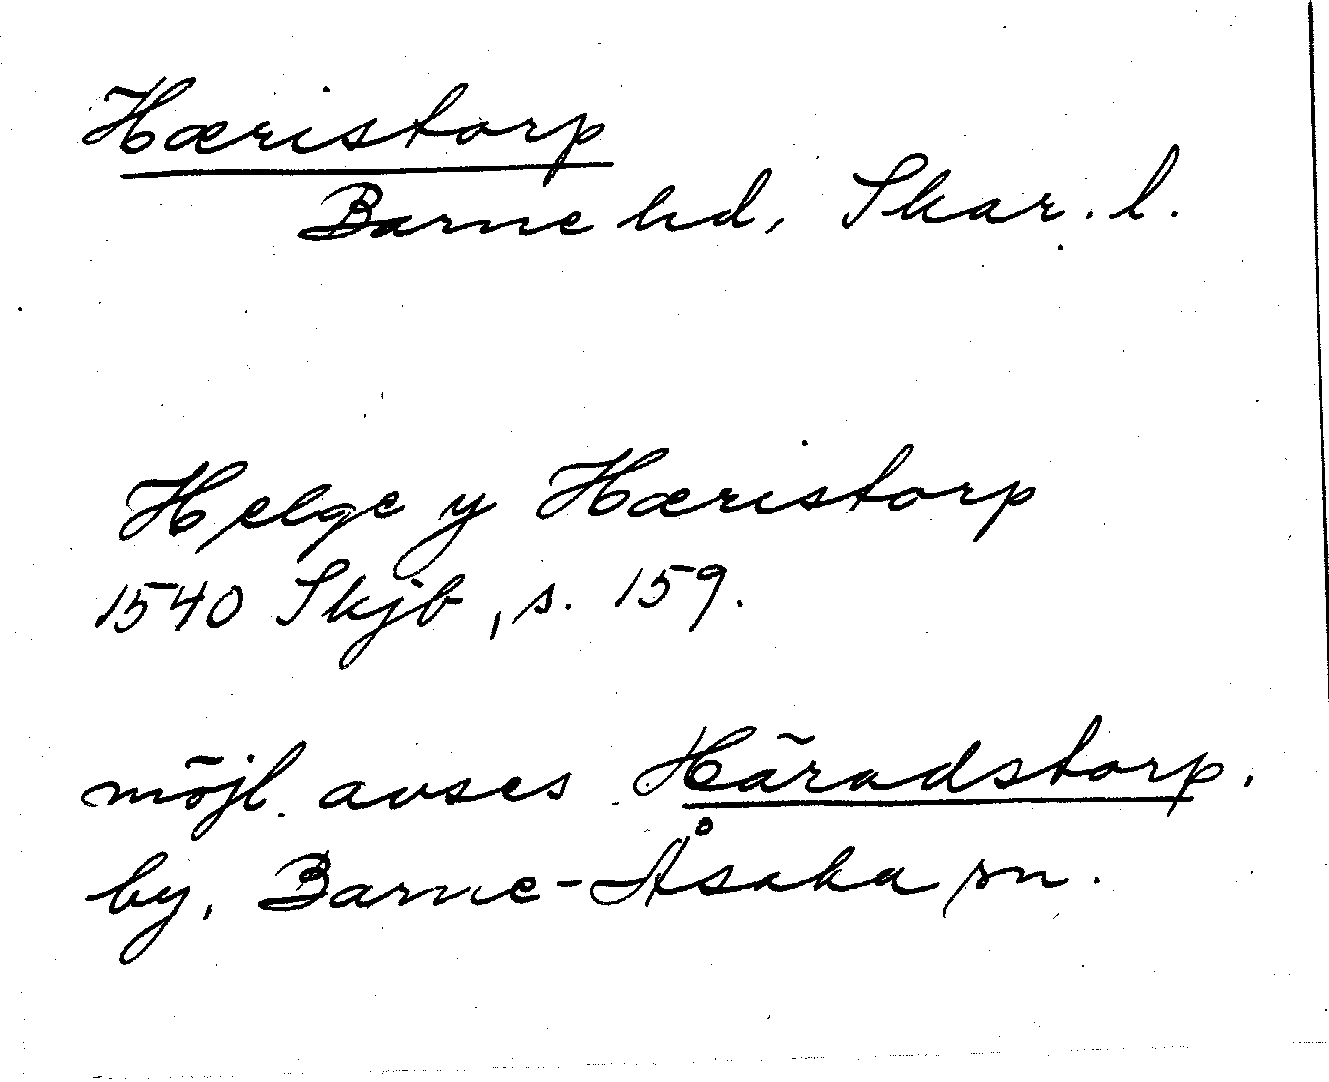 Hæristorp
Barne hd, Skar. l.
Helge y Hæristorp
1540 Skjb, s. 159.
möjl. avses Häradstorp.
by, Barne-Åsaka sn.